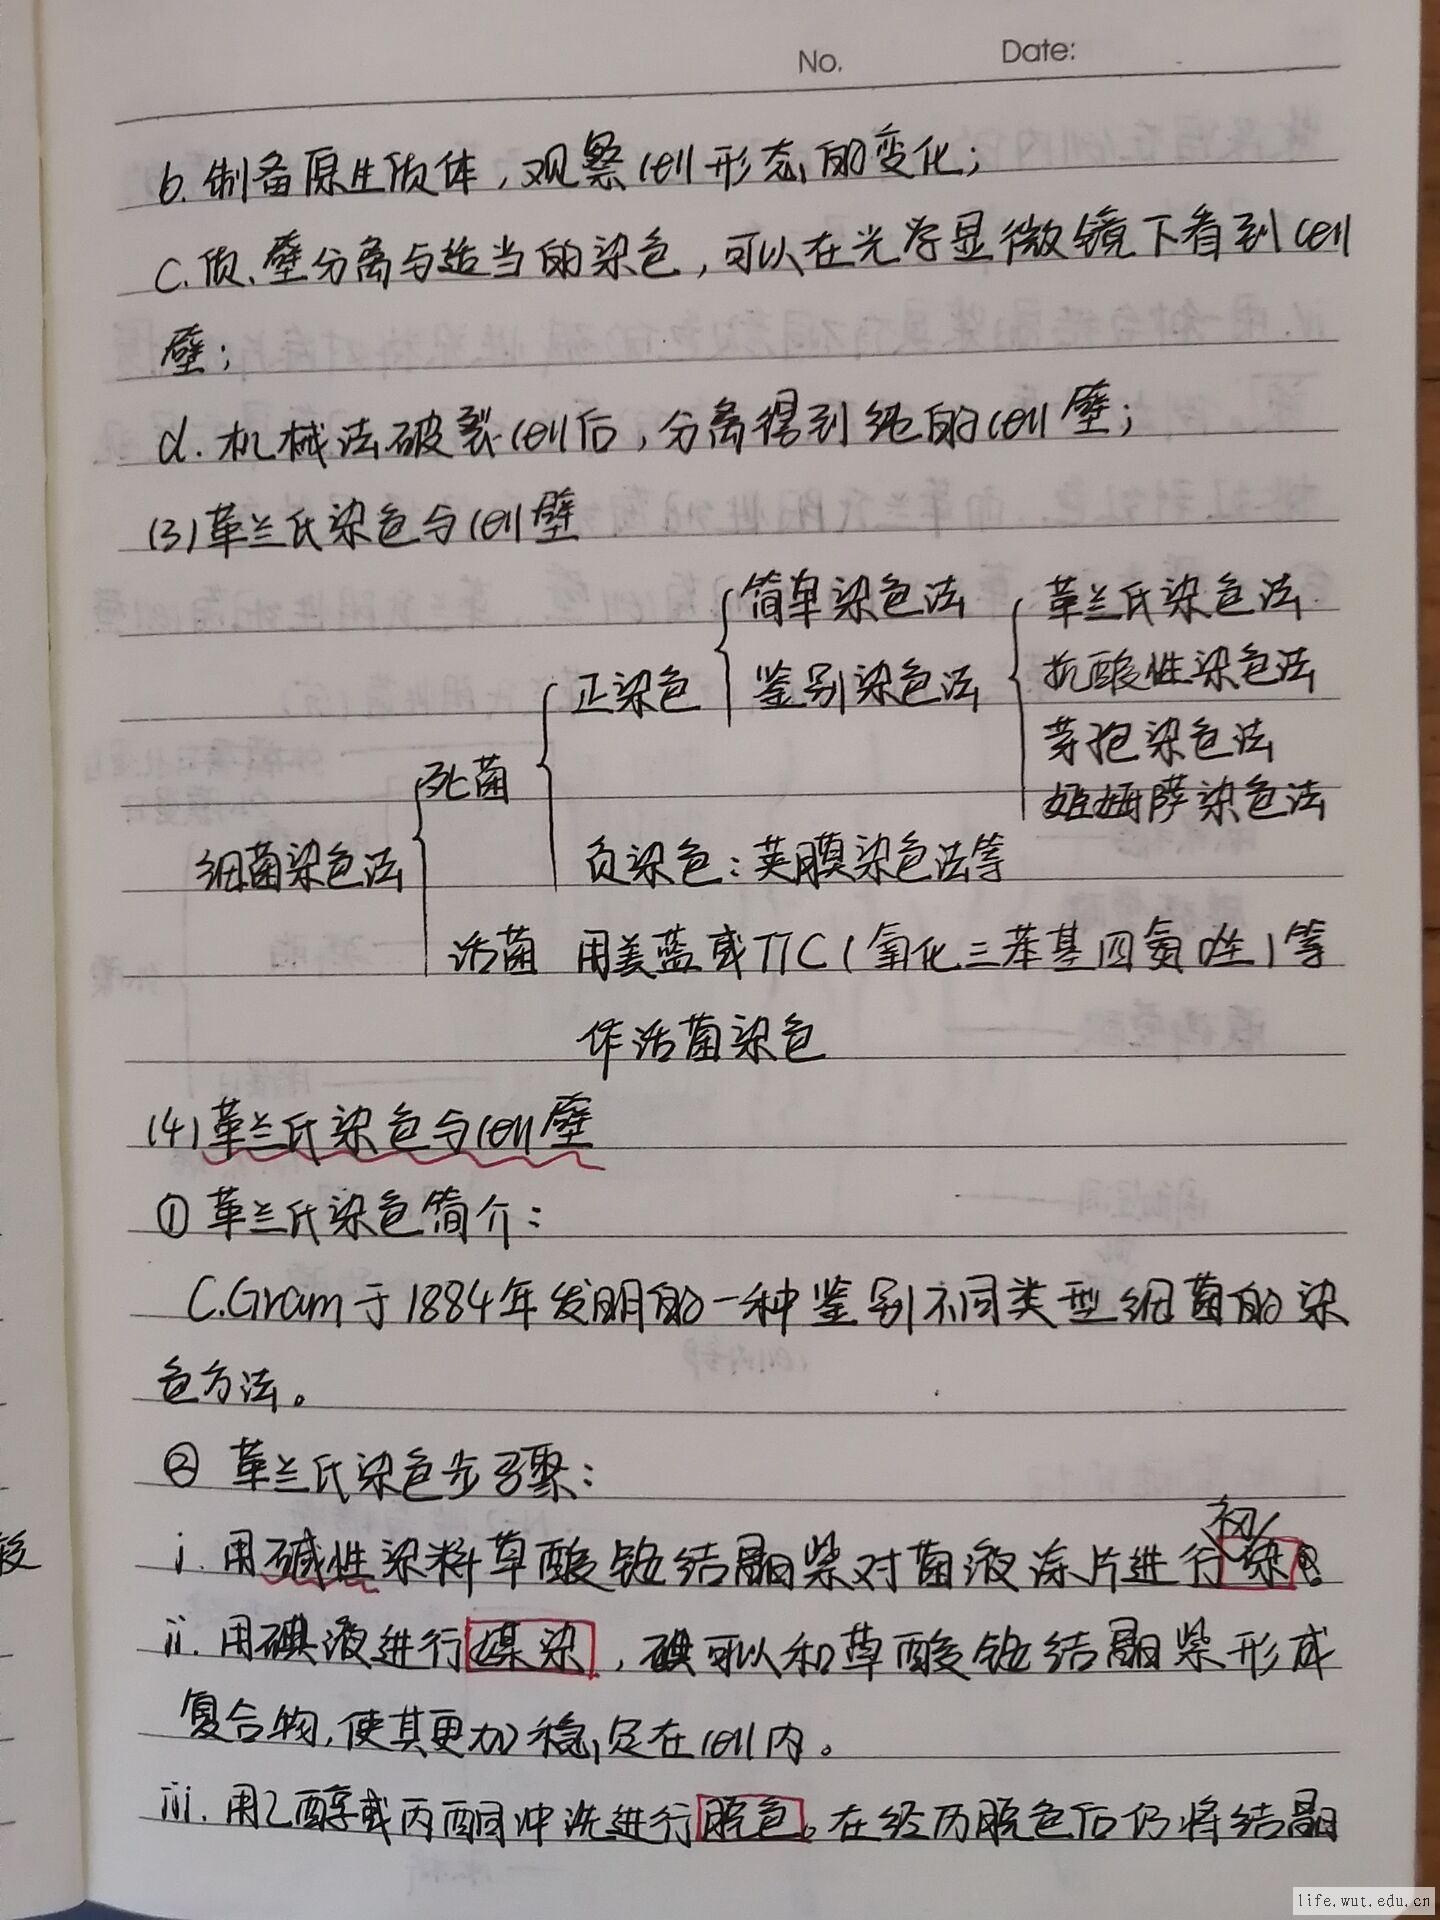 No. Date:
b. 制备原生质体，观察cell形态的变化；
c. 质、壁分离与适当的染色，可以在光学显微镜下看到cell
壁；
d. 机械法破裂cell后，分离得到纯的cell壁；
(3) 革兰氏染色与cell壁
简单染色法 革兰氏染色法
正染色 鉴别染色法 抗酸性染色法
芽孢染色法
死菌 姬姆萨染色法
细菌染色法 负染色：荚膜染色法等
活菌 用美蓝或TTC（氧化三苯基四氮唑）等
作活菌染色
(4) 革兰氏染色与cell壁
① 革兰氏染色简介：
C.Gram于1884年发明的一种鉴别不同类型细菌的染
色方法。
② 革兰氏染色步骤：
i. 用碱性染料草酸铵结晶紫对菌液涂片进行初染。
ii. 用碘液进行媒染，碘可以和草酸铵结晶紫形成
复合物，使其更加稳定在cell内。
iii. 用乙醇或丙酮冲洗进行脱色。在经历脱色后仍将结晶
较
life.wut.edu.cn